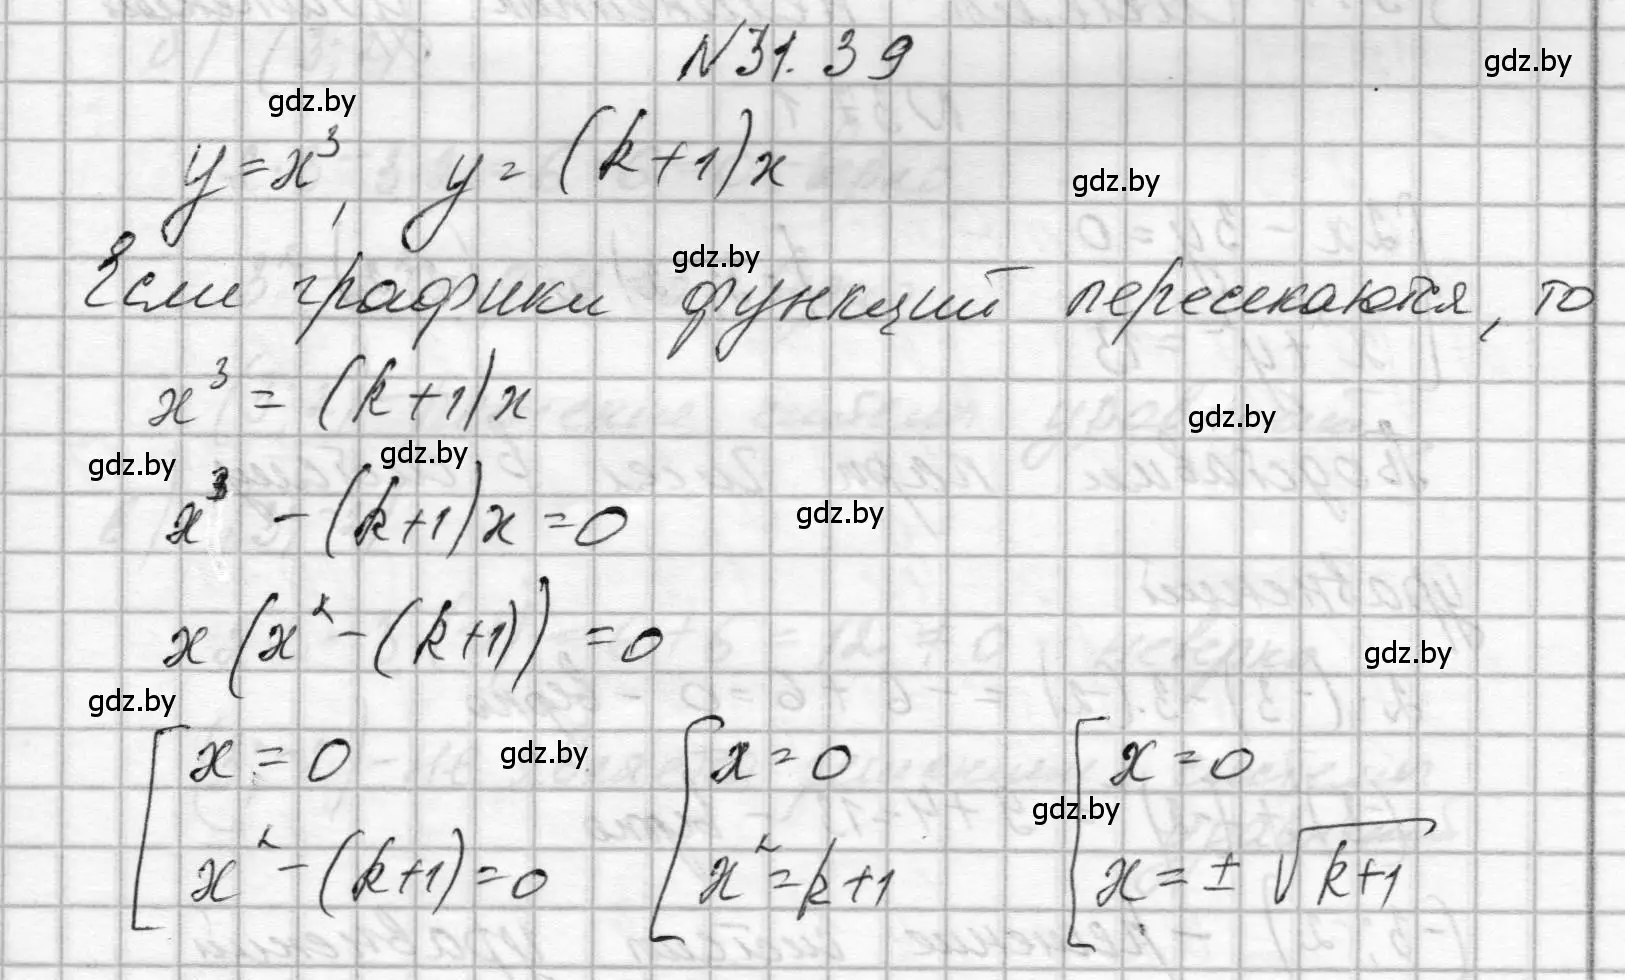 N 31.39
gdz.by
gdz.by
y = x³, y = (k+1)x
gdz.by
gdz.by
Если графики функций пересекаются, то
x³ = (k+1)x
gdz.by
gdz.by
gdz.by
x³ - (k+1)x = 0
gdz.by
x(x² - (k+1)) = 0
gdz.by
gdz.by
[x = 0 [x = 0 [x = 0
gdz.by
gdz.by
x² - (k+1) = 0 x² = k+1 x = ± √k+1